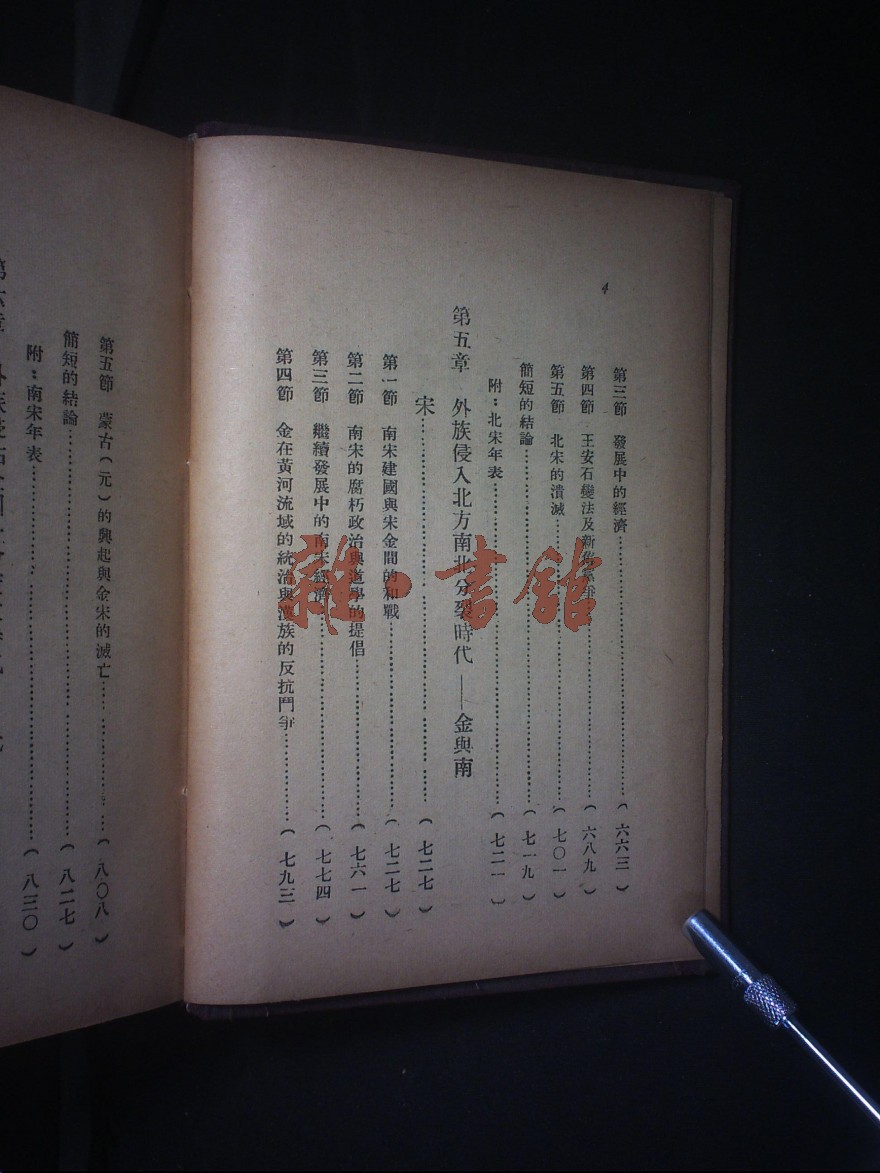 4
第三節 發展中的經濟 ( 六六三 )
第四節 王安石變法及新舊黨爭 ( 六八九 )
第五節 北宋的潰滅 ( 七〇一 )
簡短的結論 ( 七一九 )
附：北宋年表 ( 七二一 )
第五章 外族侵入北方南北分裂時代 ——金與南
宋 ( 七二七 )
第一節 南宋建國與宋金間的和戰 ( 七二七 )
第二節 南宋的腐朽政治與道學的提倡 ( 七六一 )
第三節 繼續發展中的南宋經濟 ( 七七四 )
第四節 金在黃河流域的統治與漢族的反抗鬥爭 ( 七九三 )
第五節 蒙古(元)的興起與金宋的滅亡 ( 八〇八 )
簡短的結論 ( 八二七 )
附：南宋年表 ( 八三〇 )
雜·書館